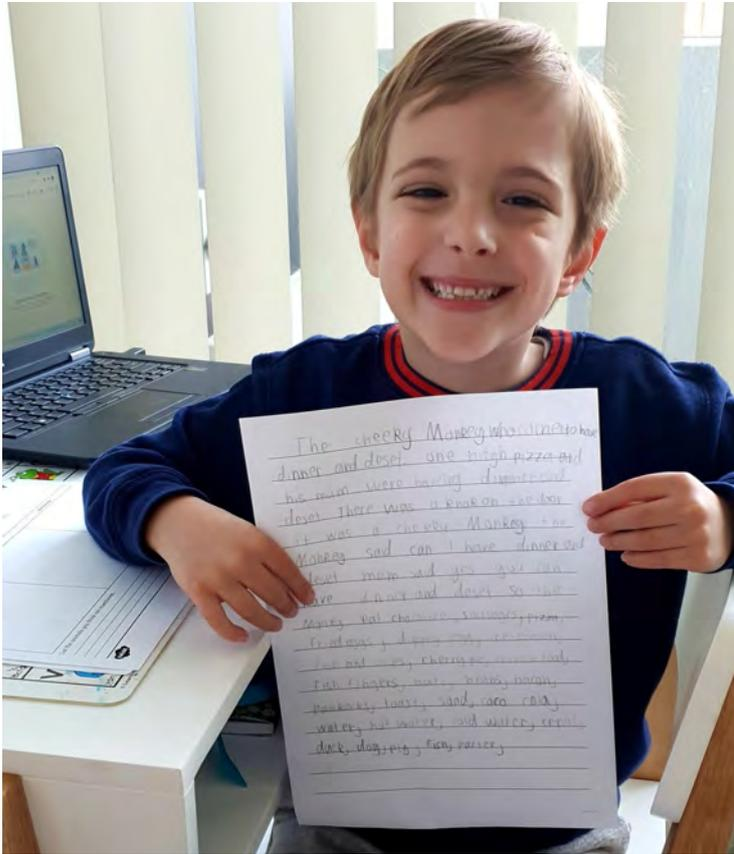 The cheeky Monkey who came to have
dinner and deset one nigh pizza and
his mum were having dinner and
deset There was a knok on the dor
it was a cheeky Monkey the
Monkey said can I have dinner and
deset mum said yes you can
have dinner and deset so the
Monky eat sausages, pizza,
cherry
fish fingers, beans, bacon,
toast, sand, coca cola,
water, hot water, cold water,
duck, dog, pig, fish,